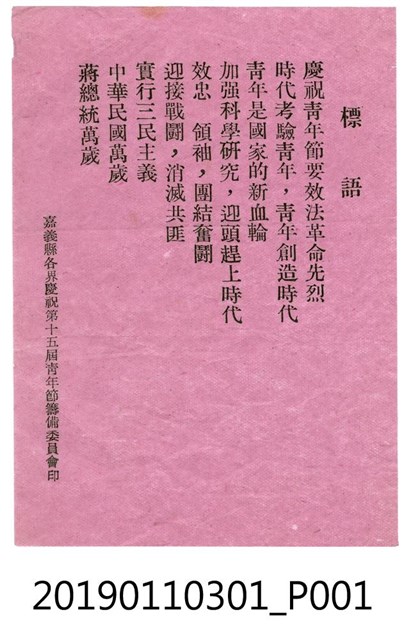 標語
慶祝青年節要效法革命先烈
時代考驗青年，青年創造時代
青年是國家的新血輪
加强科學研究，迎頭趕上時代
效忠　領袖，團結奮鬪
迎接戰鬪，消滅共匪
實行三民主義
中華民國萬歲
蔣總統萬歲
嘉義縣各界慶祝第十五屆青年節籌備委員會印
20190110301_P001